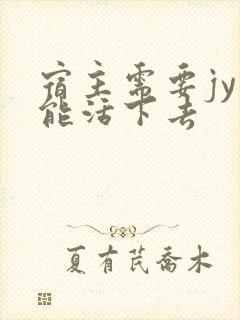 宿主需要jy
能活下去
夏有芪喬木